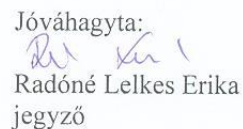 Jóváhagyta:
Radóné Lelkes Erika
jegyző